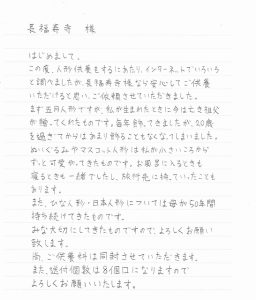 長福寿寺 様
はじめまして。
この度、人形供養をするにあたり、インターネットでいろいろ
と調べましたが、長福寿寺様なら安心してご供養
いただけると思い、ご依頼させていただきました。
まず五月人形ですが、私が生まれたときに今は亡き祖父
が贈ってくれたものです。毎年飾ってきましたが、20歳
を過ぎてからはあまり飾ることもなくなってしまいました。
ぬいぐるみやマスコット人形は私が小さいころから
ずっと可愛がってきたものです。お風呂に入るときも
寝るときも一緒でしたし、旅行先に持っていったことも
あります。
また、ひな人形・日本人形については母が50年間
持ち続けてきたものです。
みな大切にしてきたものですので、よろしくお願い
致します。
尚、ご供養料は同封させていただきます。
また、送付個数は8個口になりますので
よろしくお願いいたします。